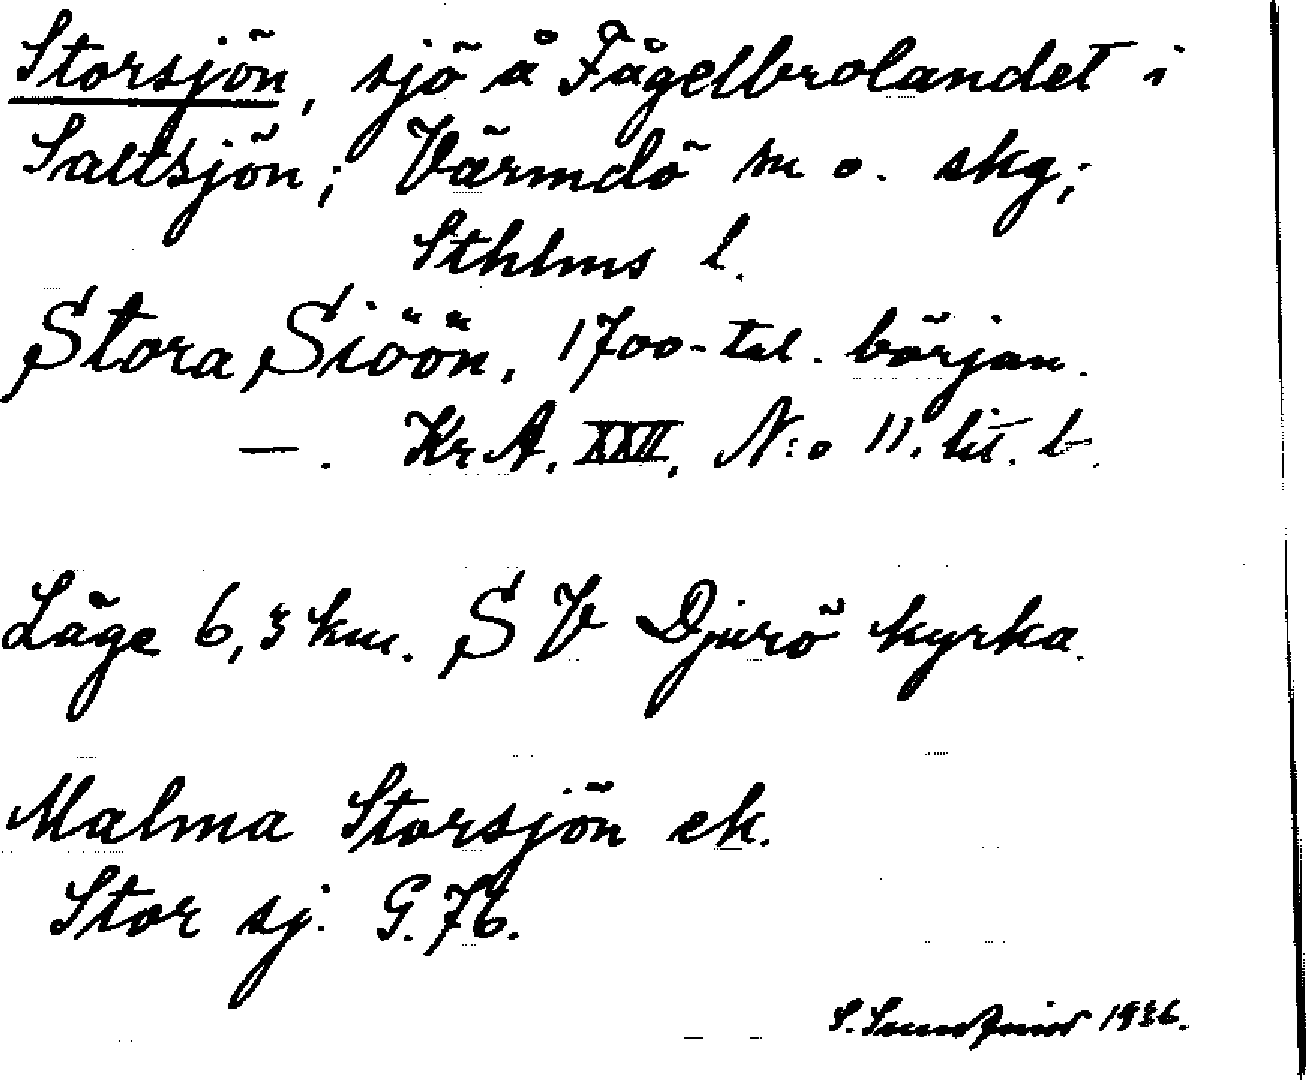 Storsjön, sjö å Fågelbrolandet i
Saltsjön; Värmdö m o. skg;
Sthlms l.
Stora Siöön, 1700-tal. början.
—. Kr A. XXII, N:o 11. lit. b.
Läge 6,3 km. S V Djurö kyrka.
Malma Storsjön ek.
Stor sj. G. 76.
S. 1936.